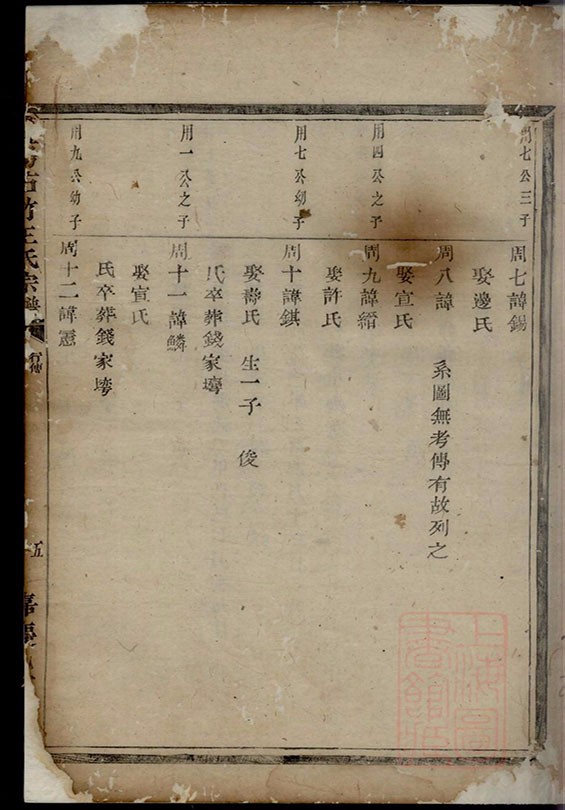 用七公三子
周七諱錫
娶邊氏
周八諱 系圖無考傳有故列之
娶宣氏
用四公之子
周九諱縉
娶許氏
用七公幼子
周十諱錤
娶壽氏 生一子 俊
氏卒葬錢家塆
用一公之子
周十一諱鱗
娶宣氏
氏卒葬錢家塆
用九公幼子
周十二諱
竹王氏宗譜
行傳
五
上海圖書館藏